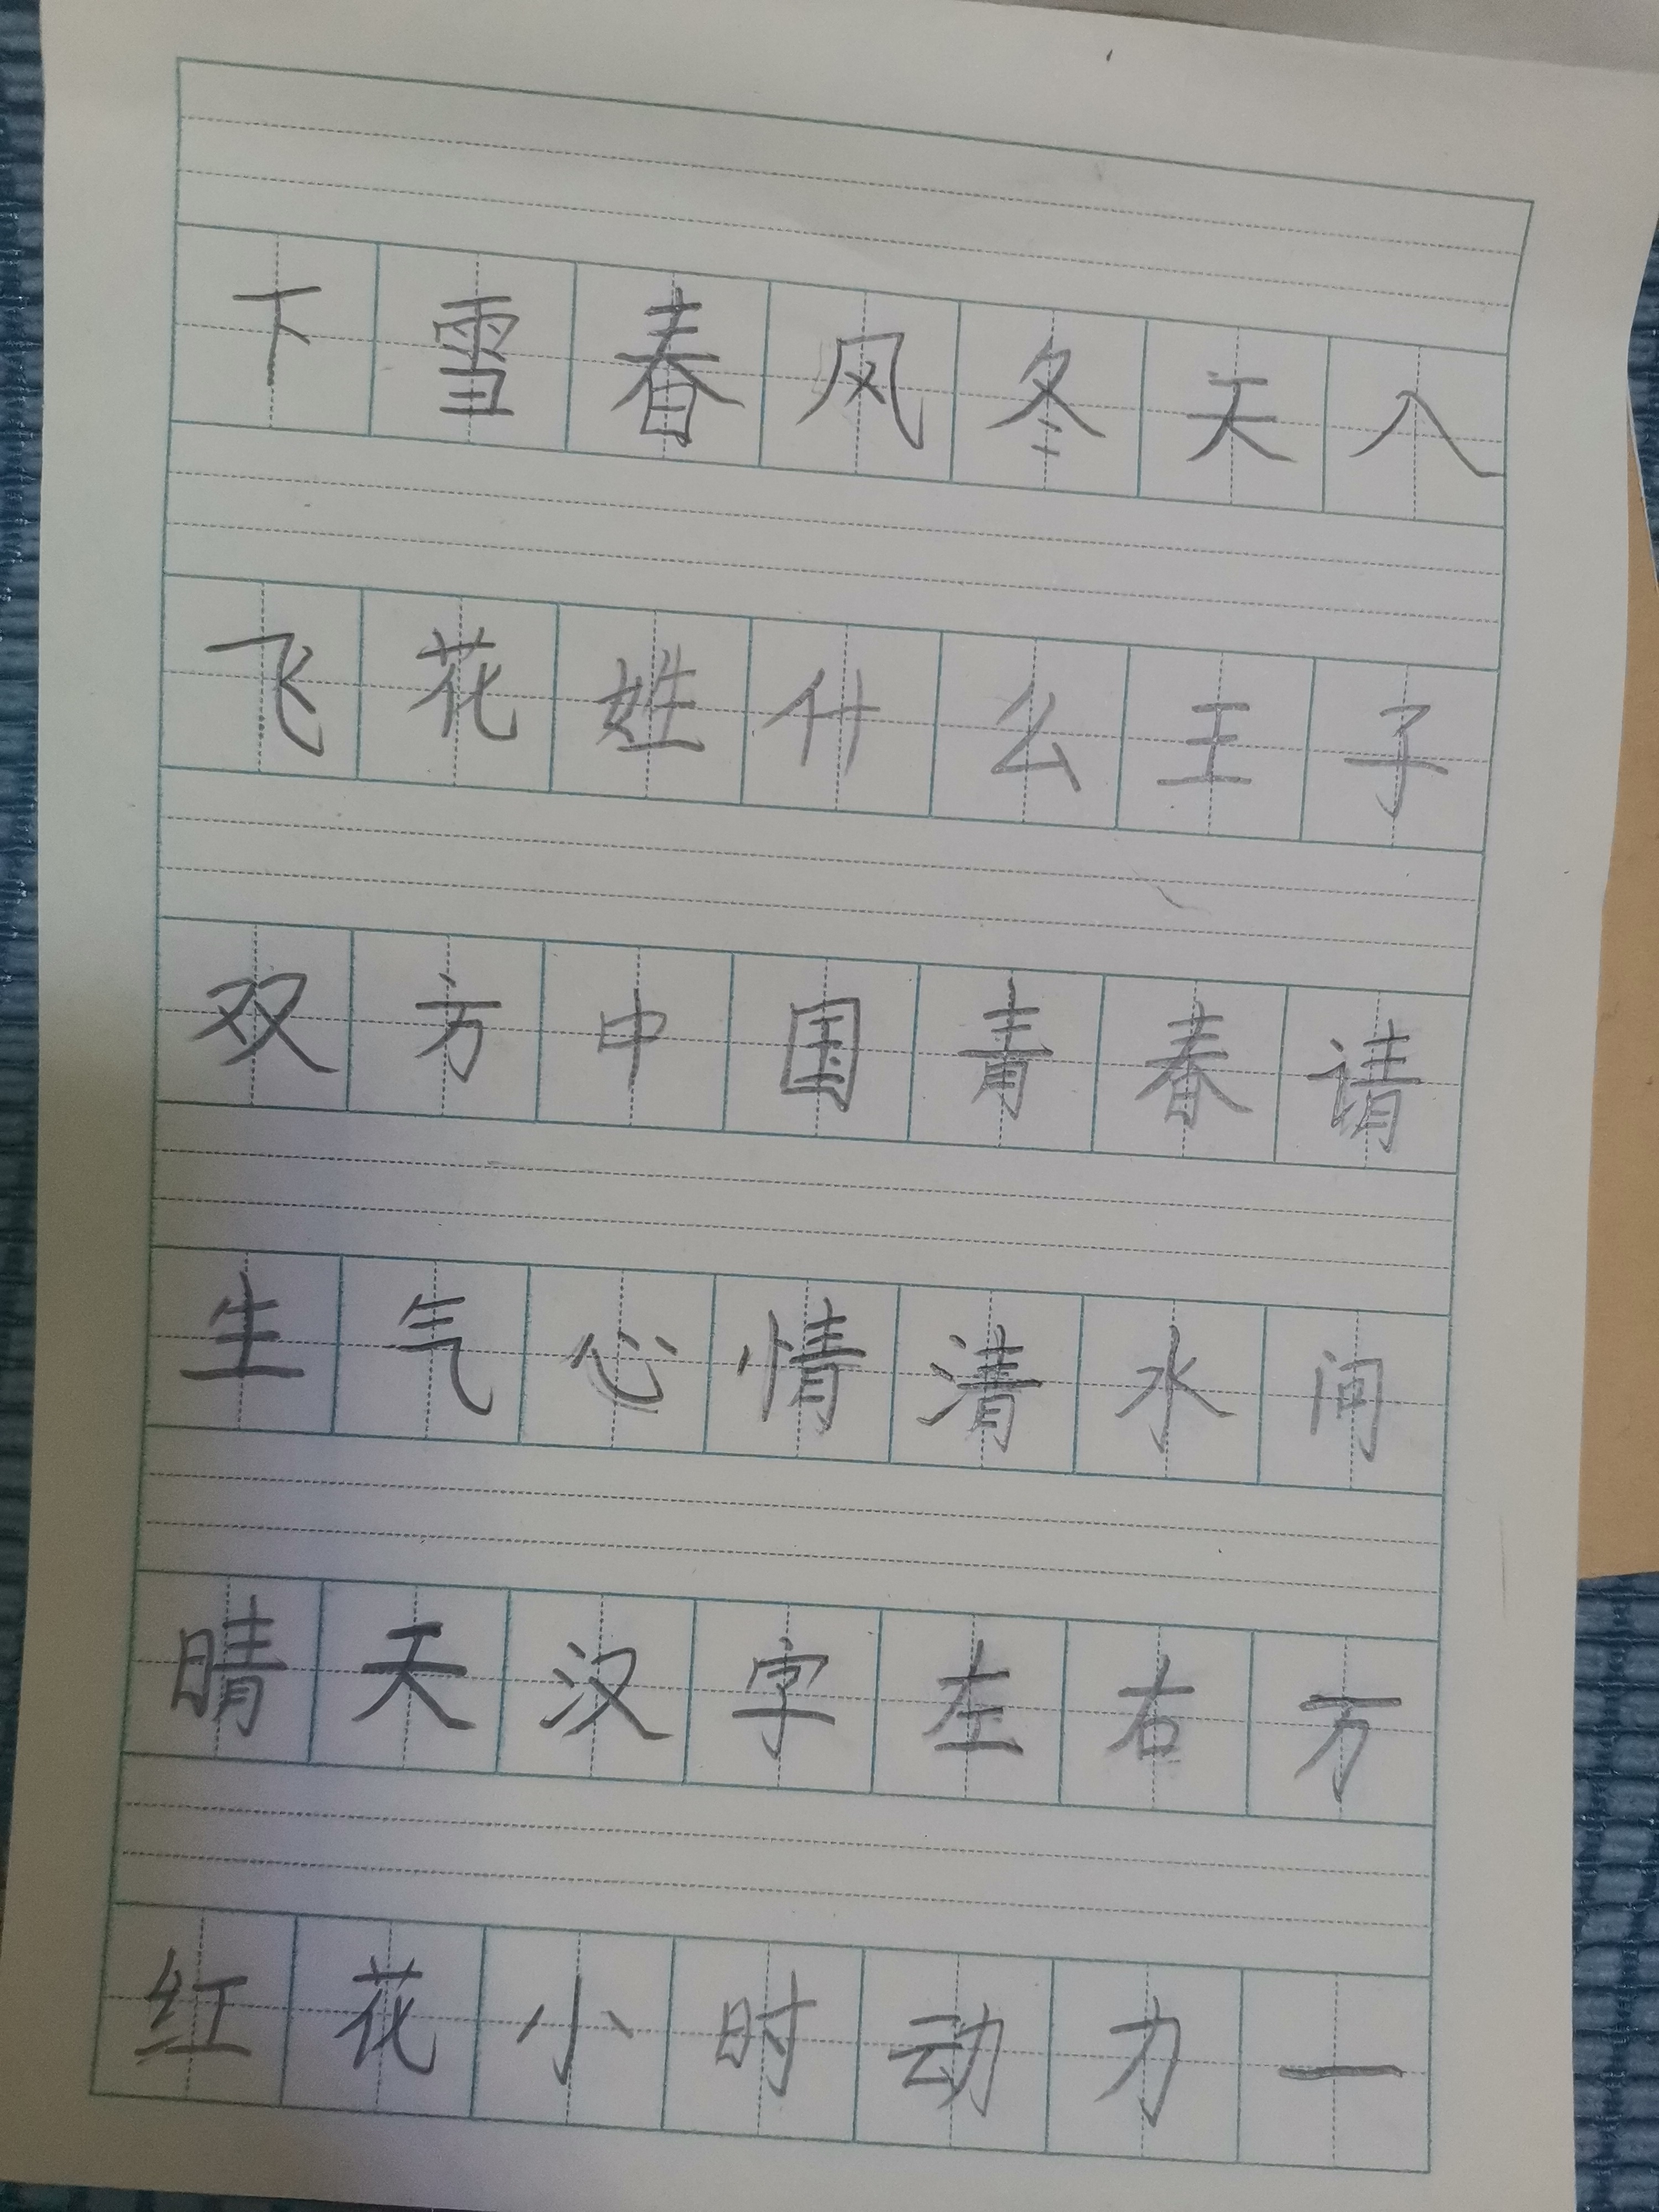 下雪春风冬天入
飞花姓什么王子
双方中国青春请
生气心情清水问
晴天汉字左右万
红花小时动力一